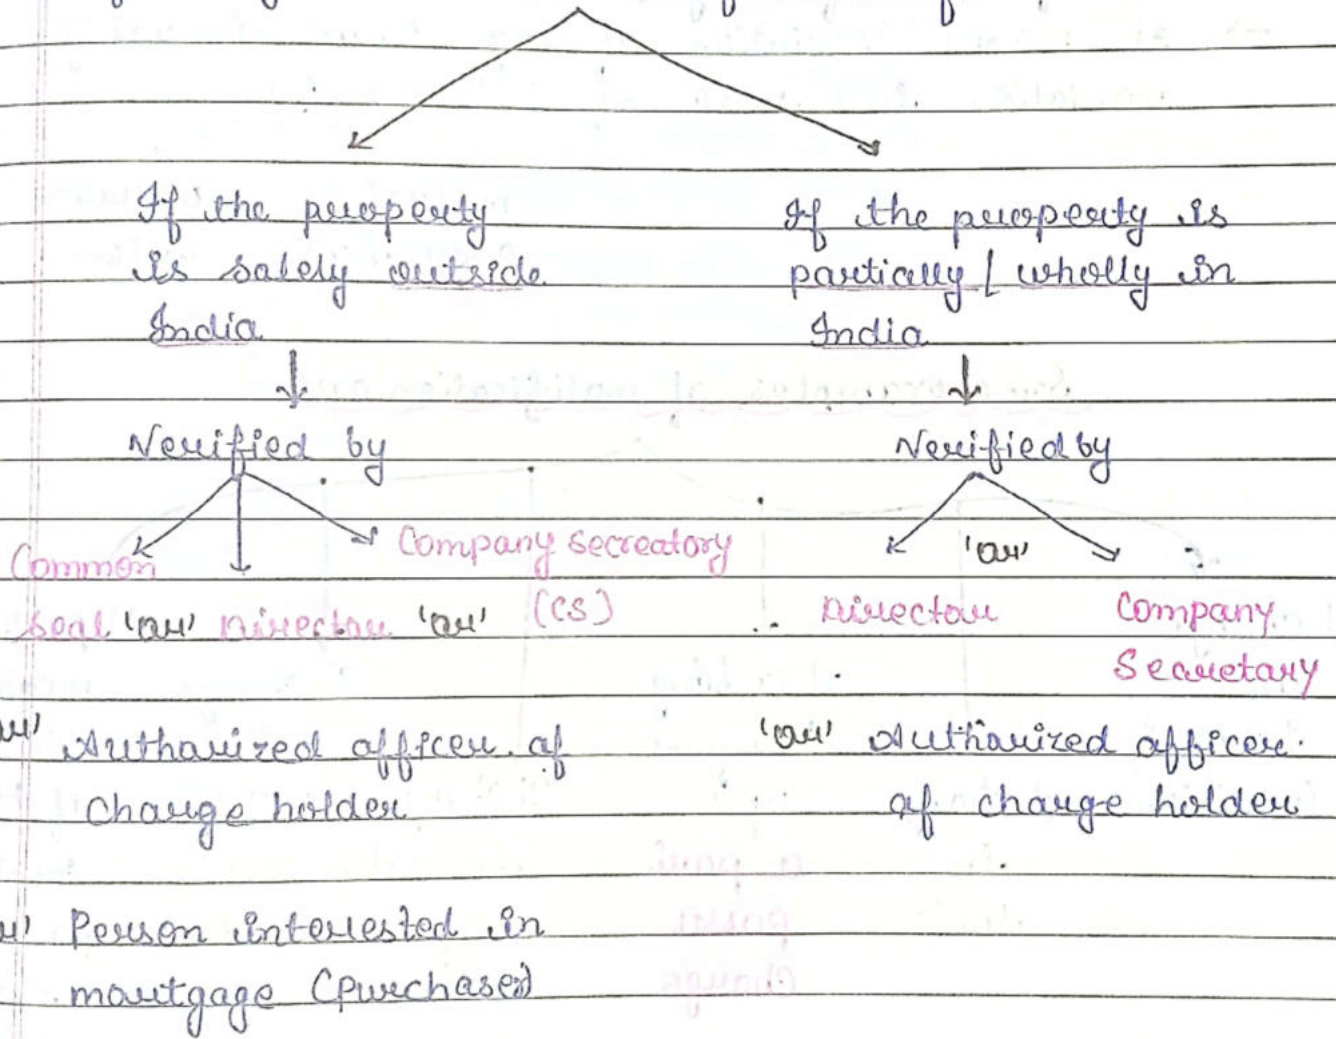 If the property
is solely outside
India
Verified by
Common
Seal 'or' Director 'or' Company secreatory
(CS)
'or' Authorized officer of
Charge holder
'or' Person interested in
mortgage (purchaser)
If the property is
partically / wholly in
India
Verified by
Director 'or' Company
Secretary
'or' Authorized officer
of charge holder